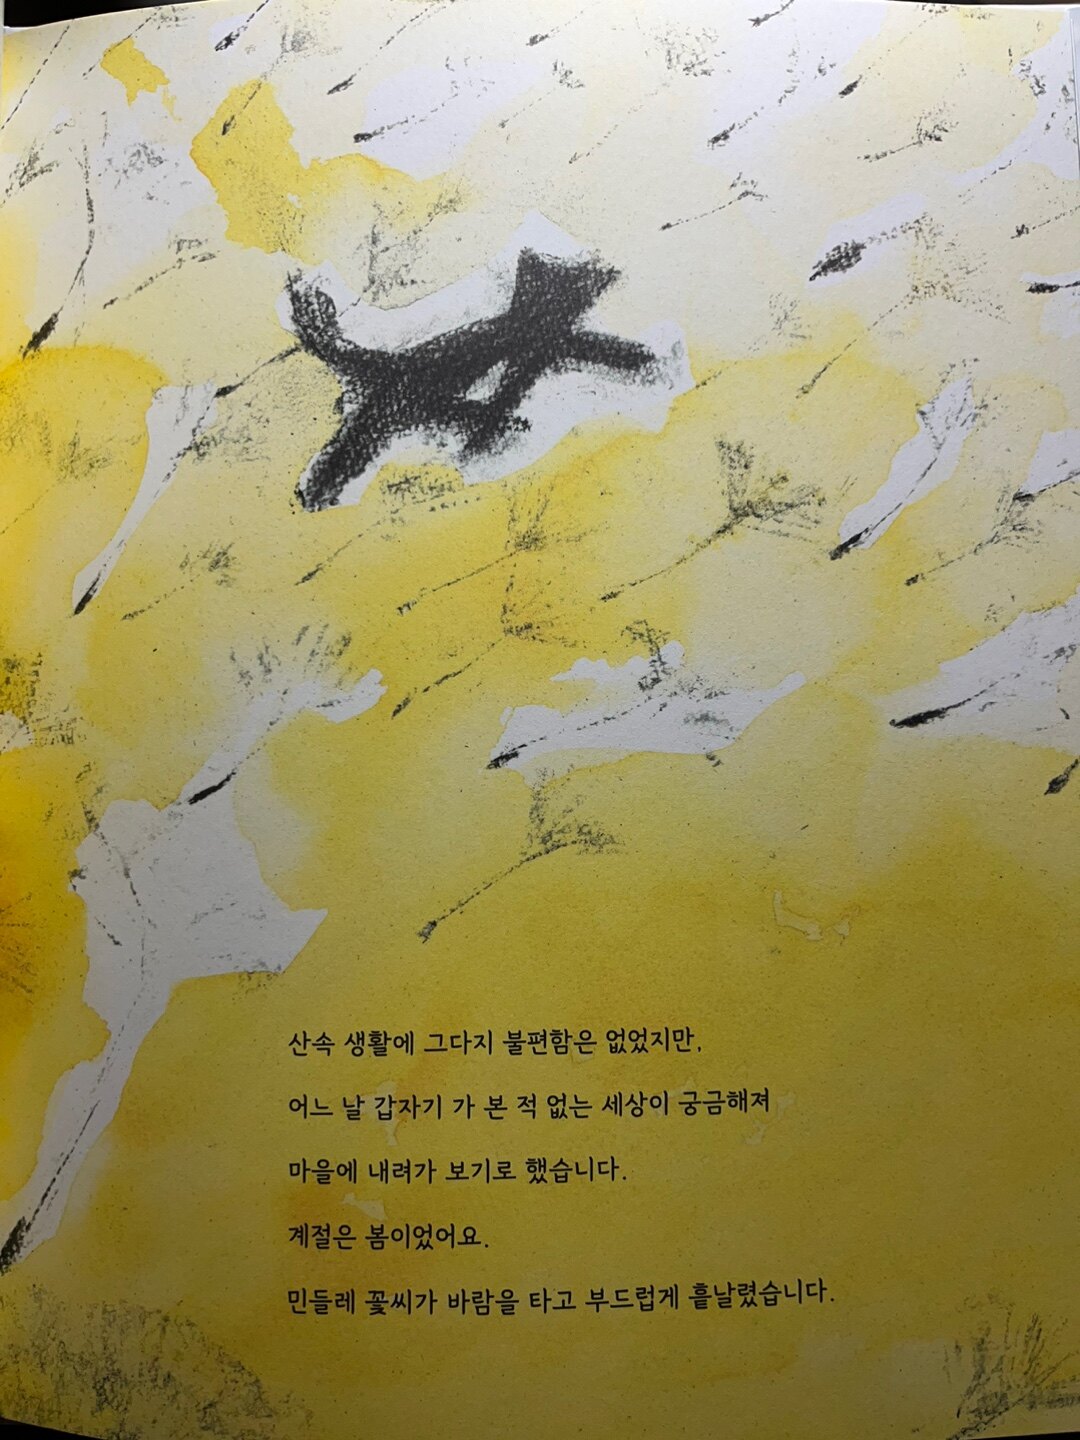 산속 생활에 그다지 불편함은 없었지만,
어느 날 갑자기 가 본 적 없는 세상이 궁금해져
마을에 내려가 보기로 했습니다.
계절은 봄이었어요.
민들레 꽃씨가 바람을 타고 부드럽게 흩날렸습니다.